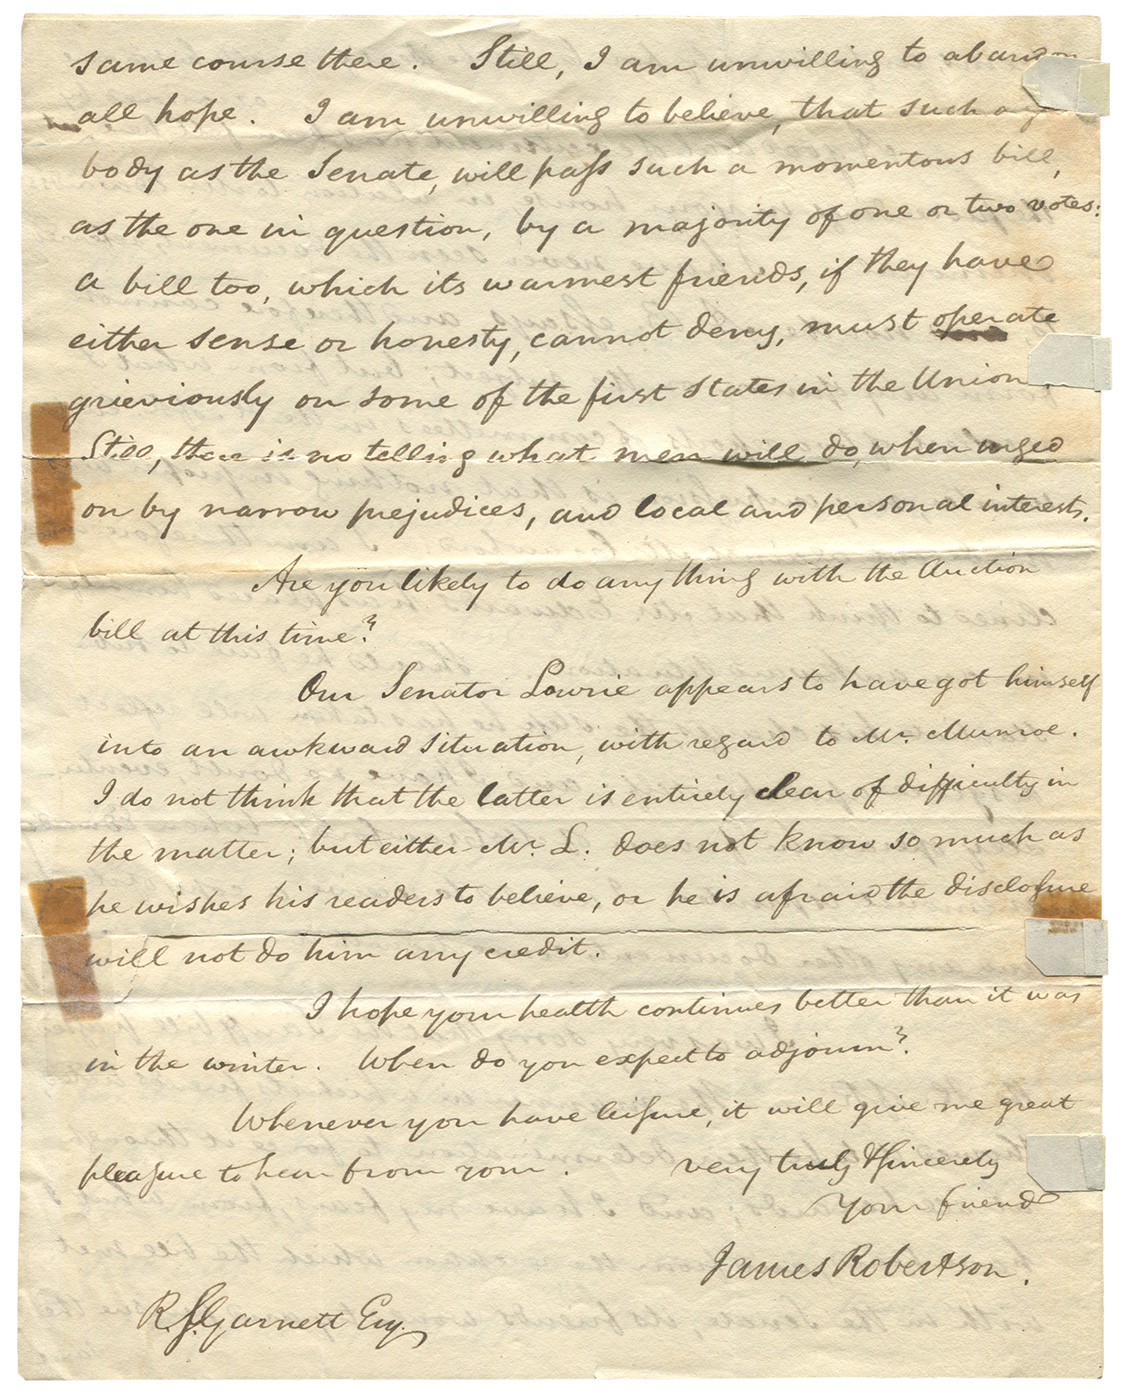 same course there. Still, I am unwilling to abandon
all hope. I am unwilling to believe, that such a
body as the Senate, will pass such a momentous bill,
as the one in question, by a majority of one or two votes:
a bill too, which its warmest friends, if they have
either sense or honesty, cannot deny, must operate
grieviously on some of the first States in the Union.
Still, there is no telling what men will do, when urged
on by narrow prejudices, and local and personal interests.
Are you likely to do any thing with the Auction
bill at this time?
Our Senator Lowrie appears to have got himself
into an awkward situation, with regard to Mr. Munroe.
I do not think that the latter is entirely clear of difficulty in
the matter; but either Mr. L. does not know so much as
he wishes his readers to believe, or he is afraid the disclosure
will not do him any credit.
I hope your health continues better than it was
in the winter. When do you expect to adjourn?
Whenever you have leisure, it will give me great
pleasure to hear from you. very truly & sincerely
Your friend
James Robertson.
R. S. Garnett Esq.